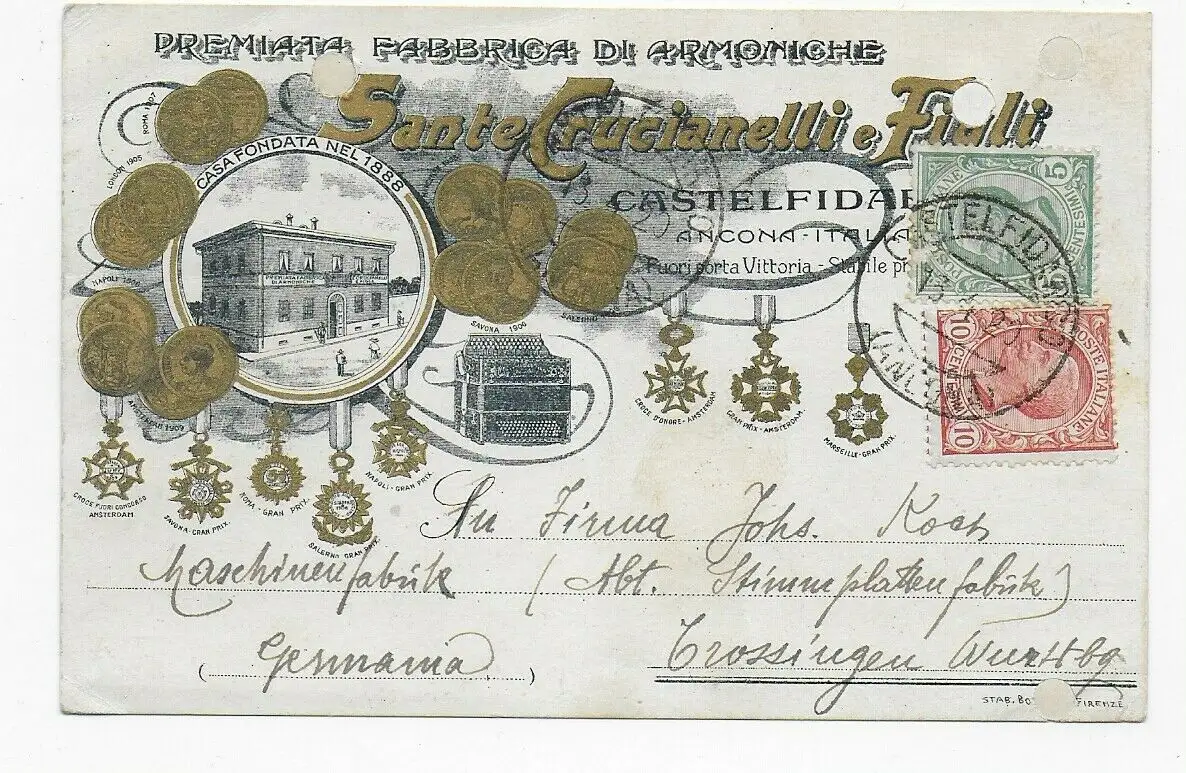 PREMIATA FABBRICA DI ARMONICHE
Sante Crucianelli e Figli
CASTELFIDAR
ANCONA-ITALIA
Fuori porta Vittoria - Stabile pr
CASA FONDATA NEL 1888
ROMA 1907
LONDON 1905
NAPOLI
AMSTERDAM 1909
SAVONA 1906
SALERNO
PREMIATA FABBRICA
DI ARMONICHE
CROCE D'ONORE - AMSTERDAM
GRAN PRIX - AMSTERDAM
MARSEILLE - GRAN PRIX
CROCE FUORI CONCORSO
AMSTERDAM
SAVONA - GRAN PRIX
ROMA - GRAN PRIX
SALERNO GRAN PRIX
NAPOLI - GRAN PRIX
5
POSTE ITALIANE
CENTESIMI 5
CASTELFIDARDO
(ANCONA)
10
POSTE ITALIANE
CENTESIMI 10
An Firma Johs. Koch
Maschinenfabrik (Abt. Stimmplattenfabrik)
Trossingen Wurttbg
(Germania)
STAB. FIRENZE